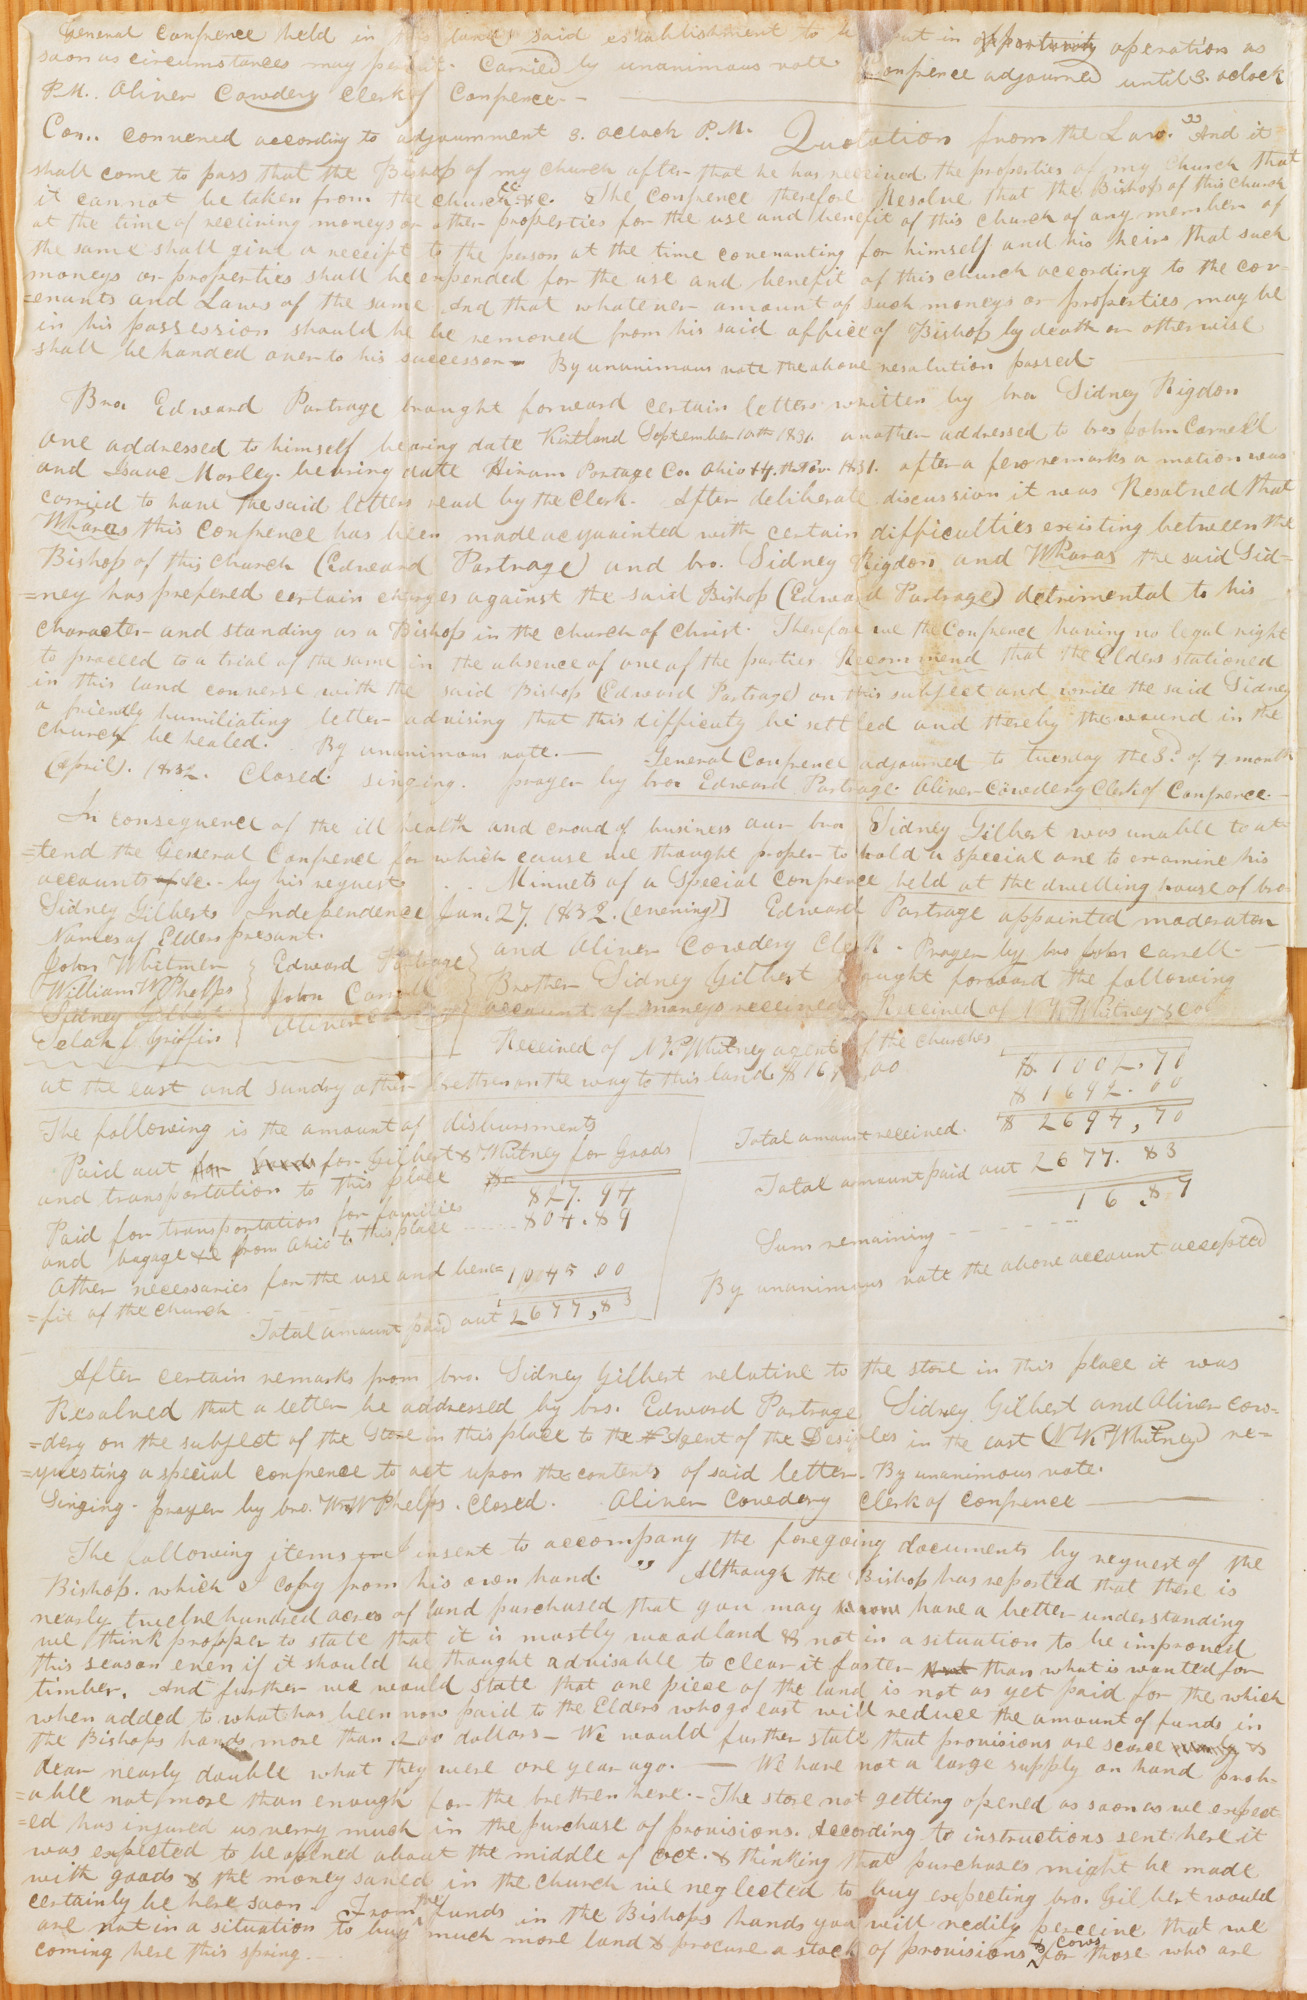 General Conference held in this land said establishment to be put in opportunity operation as
soon as circumstances may permit. Carried by unanimous vote. Confrence adjourned until 3. oclock
P.M. Oliver Cowdery Clerk of Confrence—
Con.. convened according to adjournment 3. oclock P.M. Quotation from the Law. "And it
shall come to pass that the Bishop of my church after that he has received the properties of my church that
it cannot be taken from the church" &c. The Confrence therefore Resolve that the Bishop of this Church
at the time of recieving moneys or other properties for the use and benefit of this church of any member of
the same shall give a receipt to the person at the time covenanting for himself and his heirs that such
moneys or properties shall be expended for the use and benefit of this church according to the cov-
=enants and Laws of the same And that whatever amount of such moneys or properties may be
in his possession should he be removed from his said office of Bishop by death or otherwise
shall be handed over to his successor— By unanimous vote the above resolution passed—
Bro. Edward Partrage brought forward certain letters written by bro Sidney Rigdon
one addressed to himself bearing date Kirtland September 10th 1831. another addressed to bros John Carrell
and Isaac Morley. bearing date Hiram Portage Co. Ohio 14. th Nov. 1831. after a few remarks a motion was
carried to have the said letters read by the Clerk. After deliberate discussion it was Resolved that
Wharas this Confrence has been made acquainted with certain difficulties existing between the
Bishop of this church (Edward Partrage) and bro. Sidney Rigdon and Wharas the said Sid=
=ney has prefered certain charges against the said Bishop (Edward Partrage) detrimental to his
character and standing as a Bishop in the church of Christ. Therefore we the Confrence having no legal right
to proceed to a trial of the same in the absence of one of the parties Recommend that the Elders stationed
in this land converse with the said Bishop (Edward Partrage) on this subject and write the said Sidney
a friendly humiliating letter advising that this difficuty be settled and thereby the wound in the
church be healed. By unanimous vote.— General Confrence adjourned to tuesday the 3.d of 4 month
(April). 1832. Closed. singing. prayer by bro Edward Partrage. Oliver Cowdery Clerk of Confrence.—
In consequence of the ill health and croud of business our bro Sidney Gilbert was unable to at-
=tend the General Confrence for which cause we thought proper to hold a special one to examine his
accounts of &c. by his request . . Minuets of a Special Confrence held at the dwelling house of bro.
Sidney Gilberts Independence Jan. 27. 1832. (evening)] Edward Partrage appointed moderator
Names of Elders presant. and Oliver Cowdery Clerk. Prayer by bro John Carrell.—
John Whitmer Edward Partrage Brother Sidney Gilbert brought forward the following
William W Phelps John Carrell account of moneys received. Received of N K Whitney &co
Sidney Gilbert Oliver Cowdery $ 1002.70
Selah J Griffin Received of N K Whitney agent of the churches
at the east and sundry other brethren on the way to this land $ 1692.00 $ 1692.00
The following is the amount of disbursments Total amount received. $ 2694,70
Paid out for for Gilbert & Whitney for Goods Total amount paid out 2677.83
and transportation to this place $ 827.94 16.87
Paid for transportation for families Sum remaining
and bagage &c from Ohio to this place 804.89
Other necessaries for the use and bene= 1045.00 By unanimous vote the above account accepted
=fit of the church
Total amount paid out 2677,83
After certain remarks from bro. Sidney Gilbert relative to the store in this place it was
Resolved that a letter be addressed by brs. Edward Partrage Sidney Gilbert and Oliver Cow=
=dery on the subject of the Store in this place to the Agent of the Desiples in the east (N K Whitney) re=
=questing a special confrence to act upon the contents of said letter. By unanimous vote.
Singing. prayer by bro. Wm W Phelps. Closed. Oliver Cowdery Clerk of Confrence
The following items I insert to accompany the foregoing documents by request of the
Bishop. which I copy from his own hand. " Although the Bishop has reported that there is
nearly twelve hundred acres of land purchased that you may know have a better understanding
we think propper to state that it is mostly woodland & not in a situation to be improved
this season even if it should be thought advisable to clear it faster than what is wanted for
timber. And further we would state that one piece of the land is not as yet paid for the which
when added to what has been now paid to the Elders who go east will reduce the amount of funds in
the Bishops hands more than 200 dollars— We would further state that provisions are scarce &
dear nearly double what they were one year ago. — We have not a large supply on hand prob-
=able not more than enough for the brethren here.— The store not getting opened as soon as we expect
=ed has injured us verry much in the purchase of provisions. According to instructions sent here it
was expected to be opened about the middle of Oct. & thinking that purchases might be made
with goods & the money saved in the church we neglected to buy expecting bro. Gilbert would
certainly be here soon. From the funds in the Bishops hands you will redily perceive that we
are not in a situation to buy much more land & procure a stock of provisions & cows for those who are
coming here this spring.—